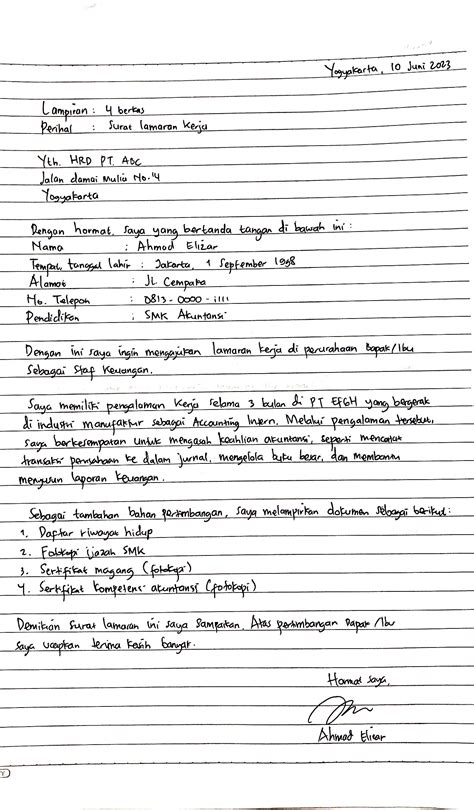 Yogyakarta, 10 Juni 2023
Lampiran : 4 berkas
Perihal : Surat lamaran kerja
Yth. HRD PT. ABC
Jalan damai Mulia No. 4
Yogyakarta
Dengan hormat, saya yang bertanda tangan di bawah ini :
Nama : Ahmad Elizar
Tempat, tanggal lahir : Jakarta, 1 September 1998
Alamat : JL Cempaka
No. Telepon : 0813-0000-1111
Pendidikan : SMK Akuntansi
Dengan ini saya ingin mengajukan lamaran kerja di perusahaan Bapak/Ibu
Sebagai Staf Keuangan.
Saya memiliki pengalaman kerja selama 3 bulan di PT EFGH yang bergerak
di industri manufaktur sebagai Accounting Intern. Melalui pengalaman tersebut,
saya berkesempatan untuk mengasah keahlian akuntansi, seperti mencatat
transaksi perusahaan ke dalam jurnal, mengelola buku besar, dan membantu
menyusun laporan keuangan.
Sebagai tambahan bahan pertimbangan, saya melampirkan dokumen sebagai berikut :
1. Daftar riwayat hidup
2. Fotokopi ijazah SMK
3. Sertifikat magang (fotokopi)
4. Sertifikat kompetensi akuntansi (fotokopi)
Demikian surat lamaran ini saya sampaikan. Atas pertimbangan Bapak/Ibu
saya ucapkan terima kasih banyak.
Hormat saya,
Ahmad Elizar